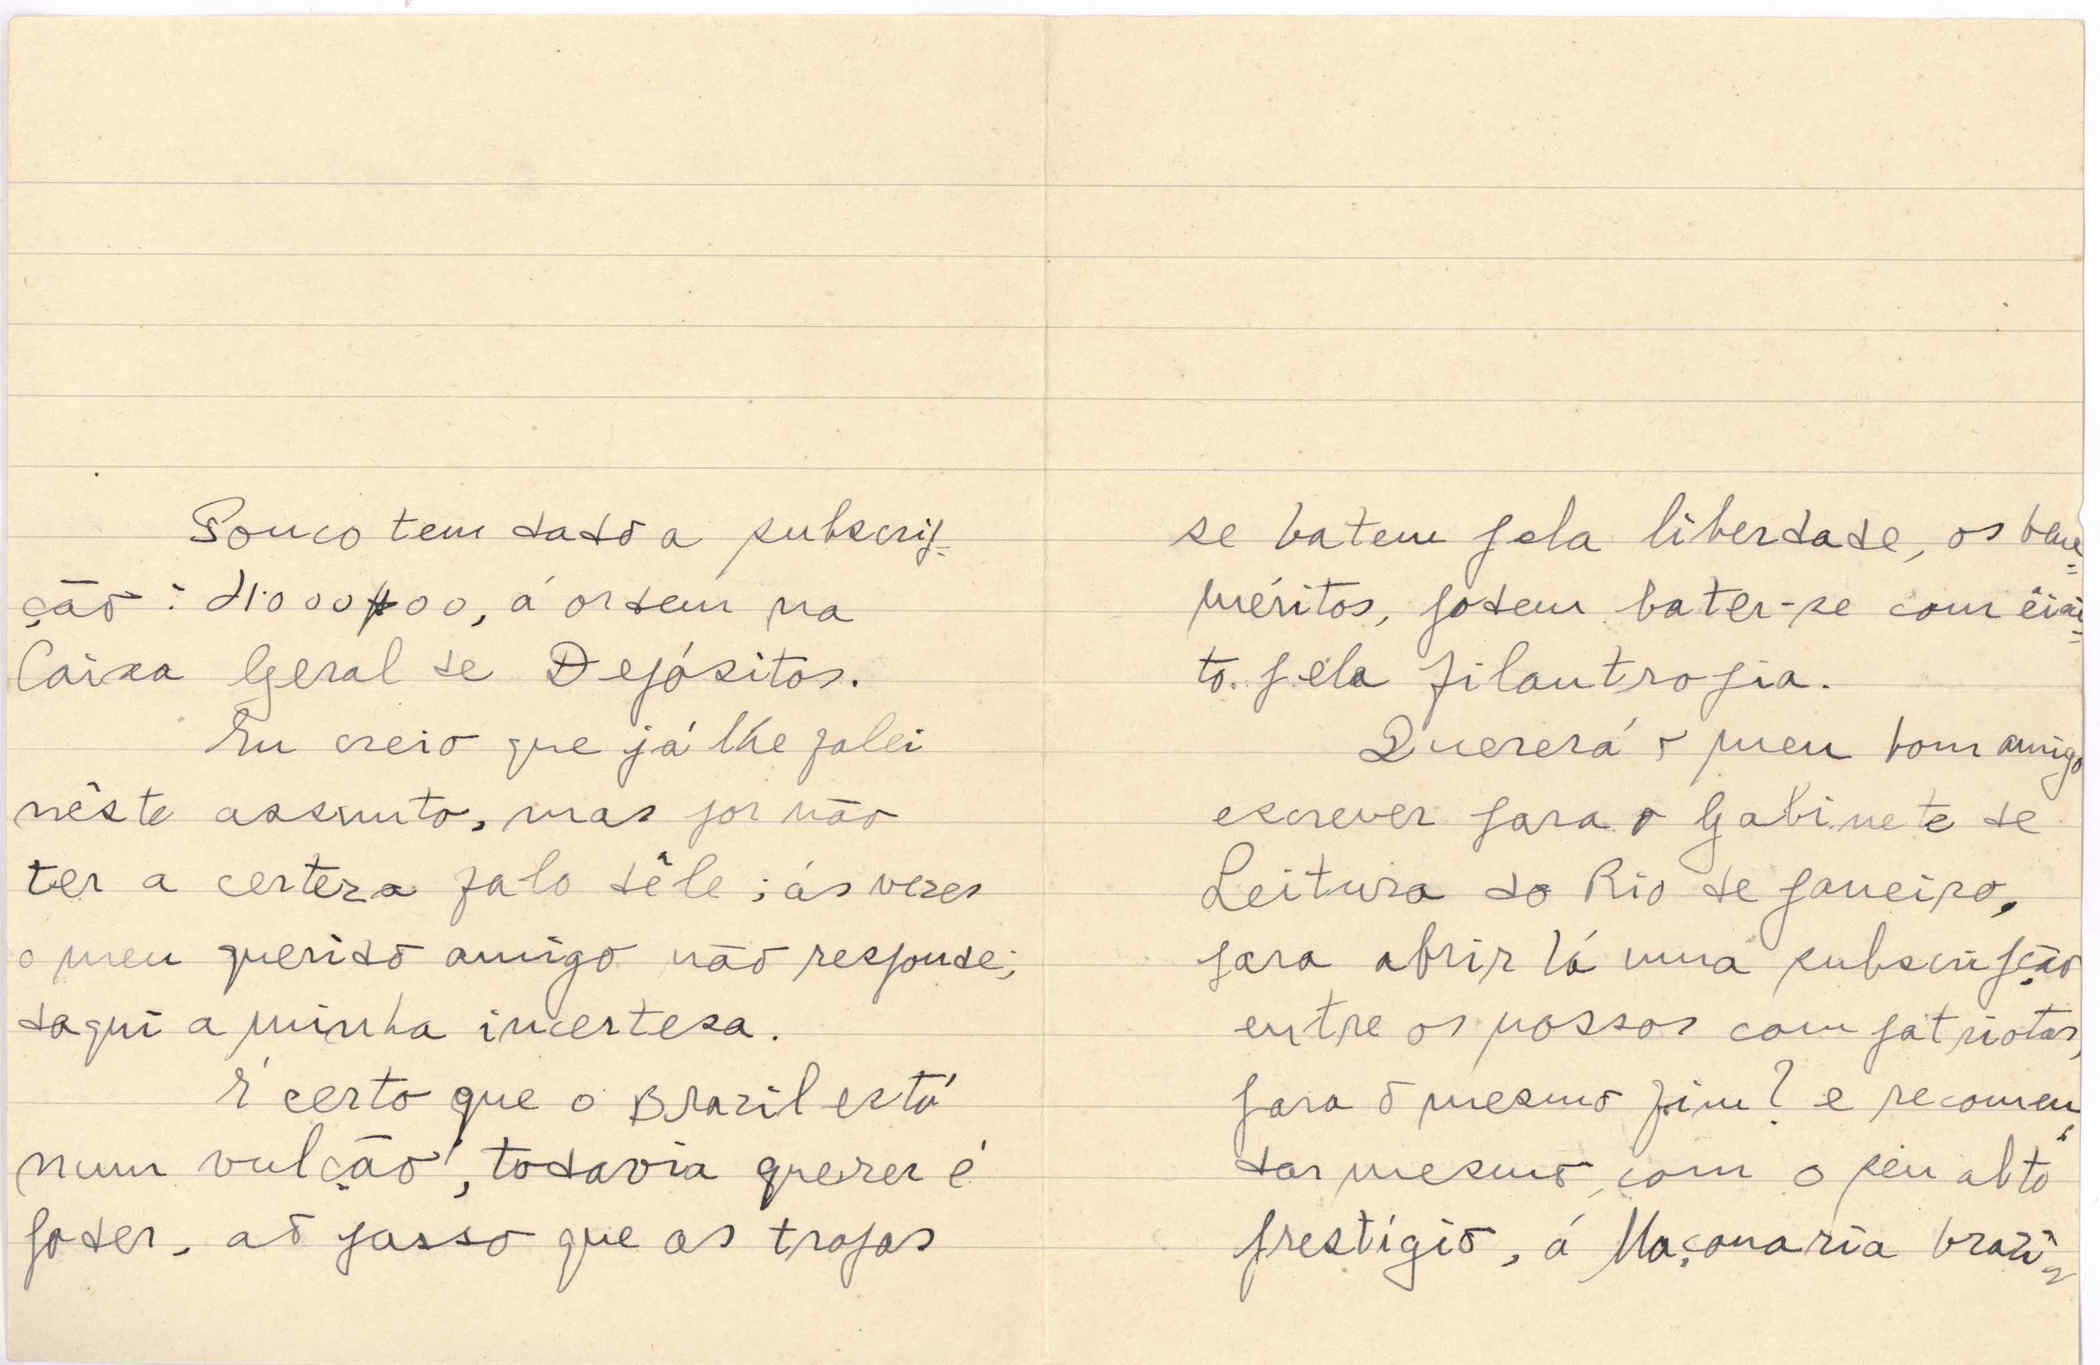 Pouco tem dado a subscrip=
ção: 11:000$00, á ordem na
Caixa Geral de Depósitos.
Eu creio que já lhe falei
nêste assunto, mas por não
ter a certeza falo dêle; ás vezes
o meu querido amigo não responde;
daqui a minha incertesa.
É certo que o Brazil está
num vulcão, todavia querer é
poder, ao passo que as tropas
se batem pela liberdade, os bene=
méritos, podem bater-se com êxi=
to pela filantropia.
Quererá o meu bom amigo
escrever para o Gabinete de
Leitura do Rio de Janeiro,
para abrir lá uma subscripção
entre os nossos compatriotas,
para o mesmo fim? e recomen
dar mesmo, com o seu alto
prestígio, á Maçonaria brazi=